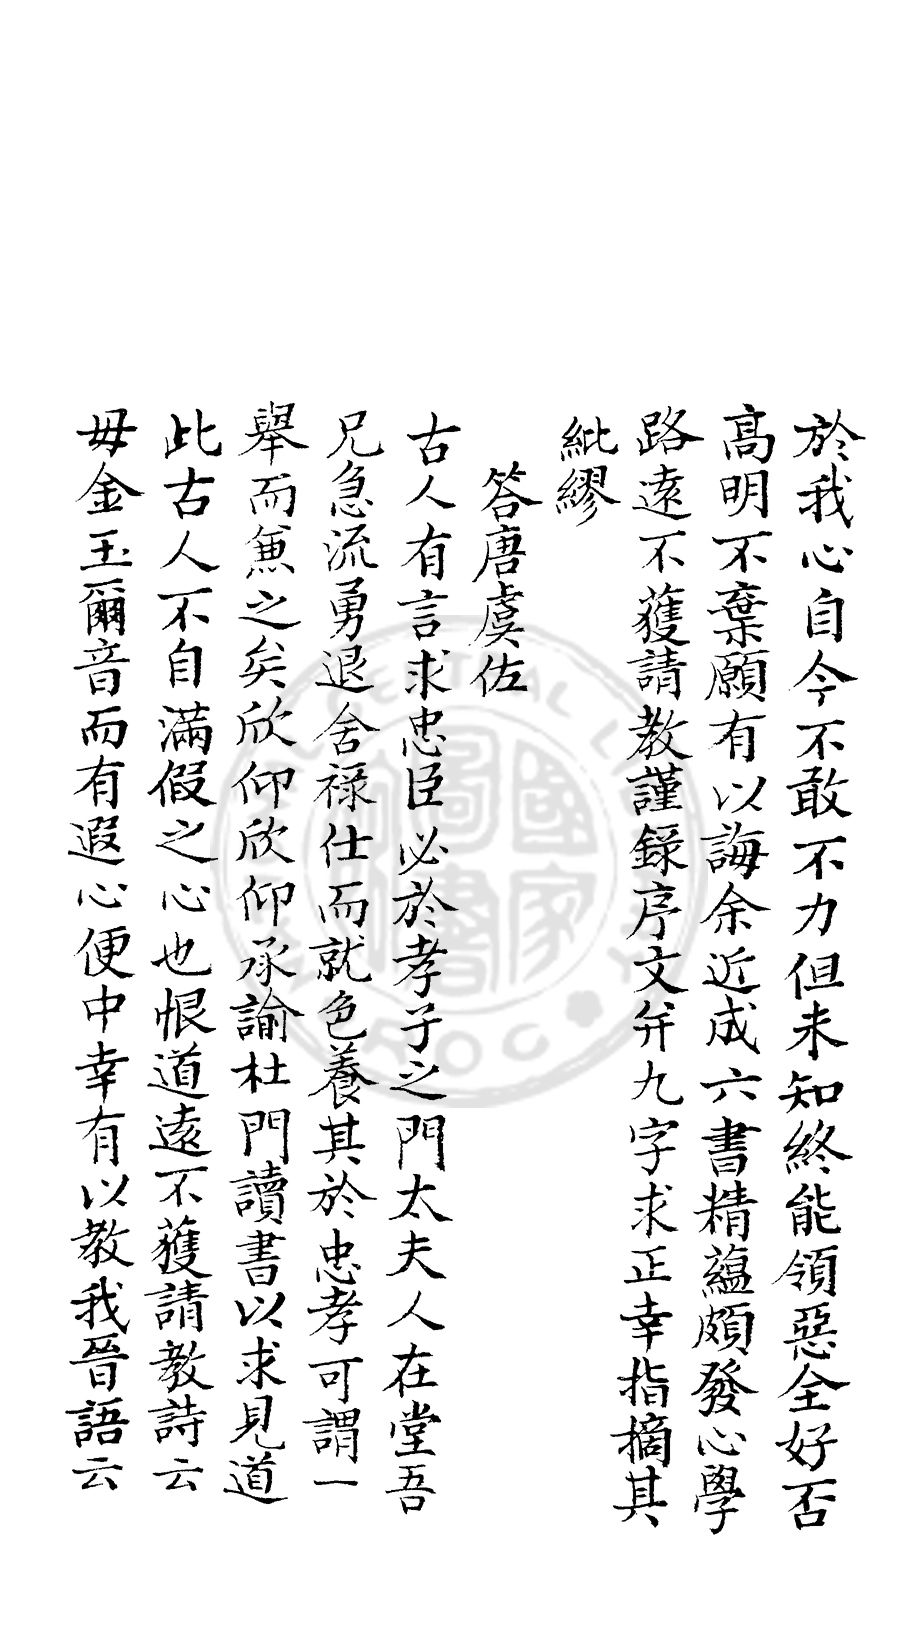 於我心自今不敢不力但未知終能領惡全好否
高明不棄願有以誨余近成六書精蘊頗發心學
路遠不獲請教謹錄序文并九字求正幸指摘其
紕繆
答唐虞佐
古人有言求忠臣必於孝子之門太夫人在堂吾
兄急流勇退舍祿仕而就色養其於忠孝可謂一
舉而兼之矣欣仰欣仰承諭杜門讀書以求見道
此古人不自滿假之心也恨道遠不獲請教詩云
毋金玉爾音而有遐心便中幸有以教我晉語云
國家圖書館
CENTRAL LIBRARY
ROC